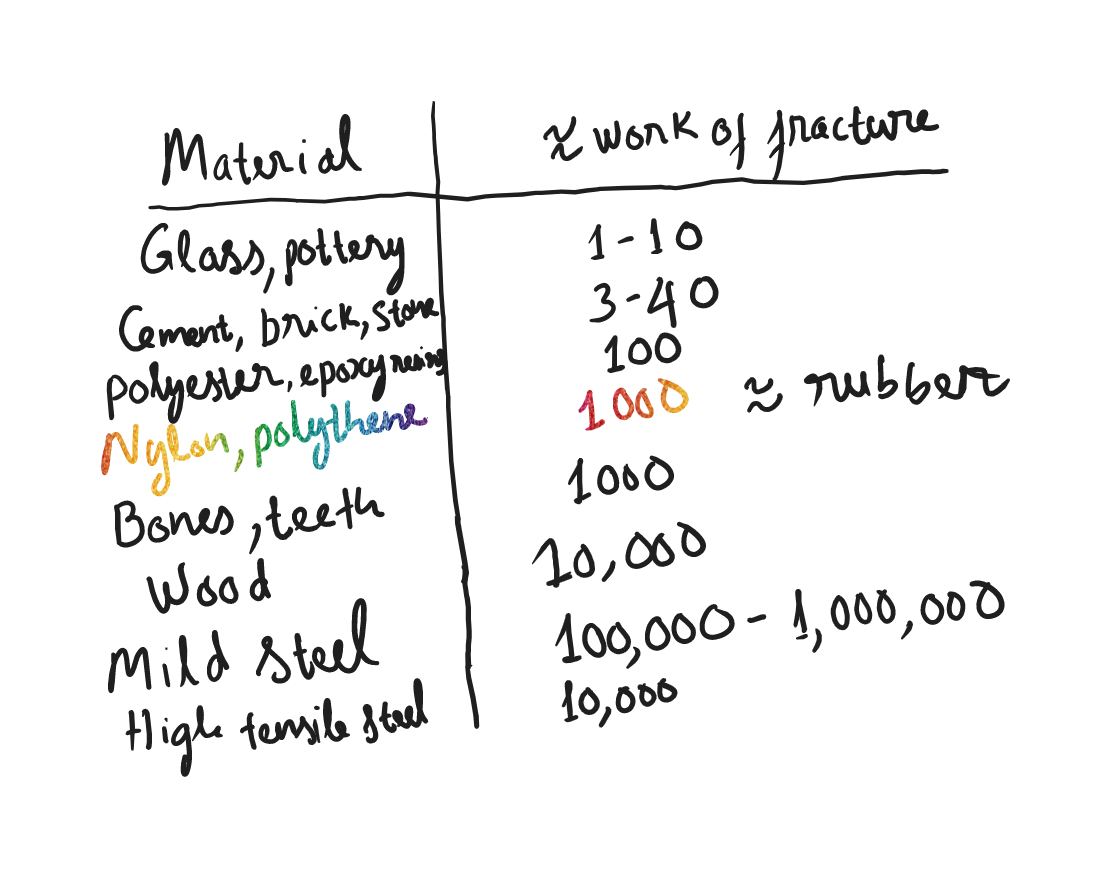 Material ≈ work of fracture
Glass, pottery 1-10
Cement, brick, stone 3-40
polyester, epoxy resins 100
Nylon, polythene 1000 ≈ rubber
Bones, teeth 1000
Wood 10,000
Mild steel 100,000 - 1,000,000
High tensile steel 10,000